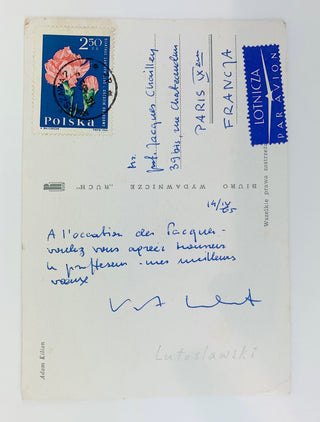 2.50 ZŁ
POLSKA
prof. Jacques Chailley
39 bis, rue
PARIS IXème
FRANCJA
LOTNICZA
PAR AVION
BIURO WYDAWNICZE "RUCH"
Wszelkie prawa
14/IV
65
A l'occasion des Pacques -
voulez vous agréer monsieur
le professeur - mes meilleurs
voeux
Adam Kilian
Lutoslawski